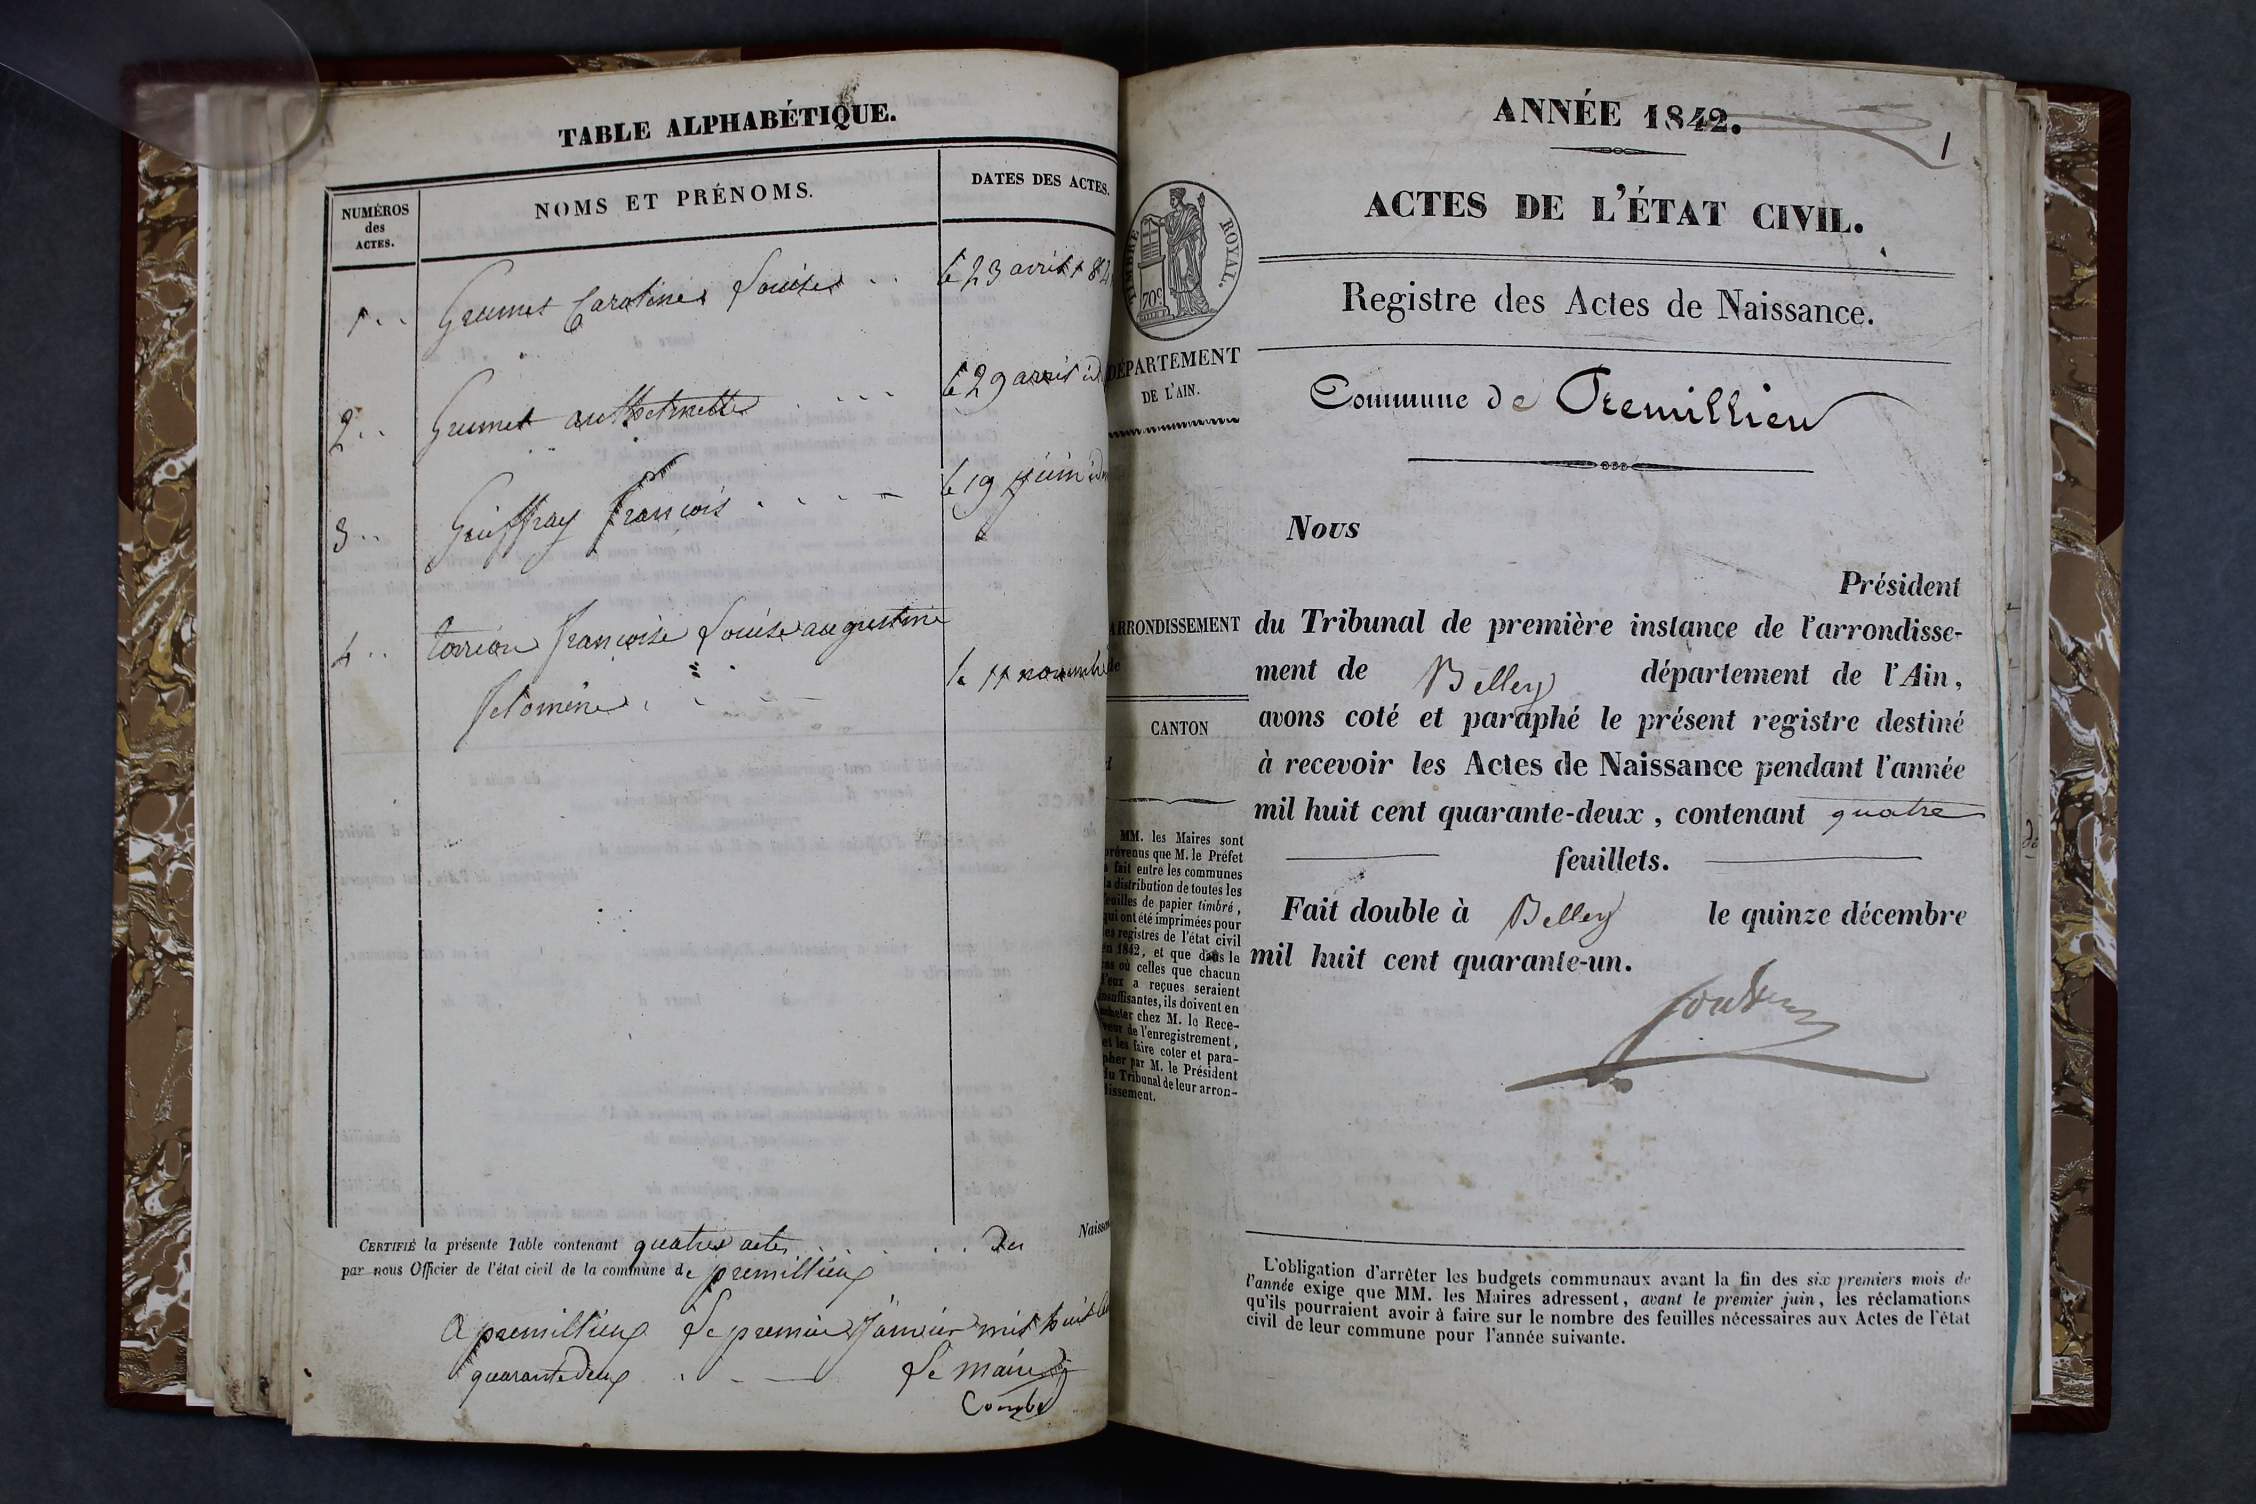 TABLE ALPHABÉTIQUE.
NUMÉROS
des
ACTES.
NOMS ET PRÉNOMS.
DATES DES ACTES.
1 . . Grumet Caroline Louise . . le 23 avril 184
2 . . Grumet anthelmette . . . . le 29 avril id
3 . . Geuffray françois . . . . le 19 juin id
4 . . françoise Louise augustine
. . . le 11 novembre
CERTIFIÉ la présente Table contenant quatres actes . . . . . . De Naissan
par nous Officier de l'état civil de la commune de premillieux
A premillieux Le premier Janvier mil huit
quarante Deux . - — Le maire
Combe
ANNÉE 1842.
1
ACTES DE L'ÉTAT CIVIL.
TIMBRE ROYAL.
70c
Registre des Actes de Naissance.
DÉPARTEMENT
DE L'AIN.
Commune de Premillieu
Nous
Président
ARRONDISSEMENT
du Tribunal de première instance de l'arrondisse-
ment de Belley département de l'Ain,
CANTON
avons coté et paraphé le présent registre destiné
à recevoir les Actes de Naissance pendant l'année
mil huit cent quarante-deux, contenant quatre
feuillets.
Fait double à Belley le quinze décembre
mil huit cent quarante-un.
MM. les Maires sont
prévenus que M. le Préfet
a fait entre les communes
la distribution de toutes les
feuilles de papier timbré,
qui ont été imprimées pour
les registres de l'état civil
en 1842, et que dans le
cas où celles que chacun
d'eux a reçues seraient
insuffisantes, ils doivent en
acheter chez M. le Rece-
veur de l'enregistrement,
et les faire coter et para-
pher par M. le Président
du Tribunal de leur arron-
dissement.
L'obligation d'arrêter les budgets communaux avant la fin des six premiers mois de
l'année exige que MM. les Maires adressent, avant le premier juin, les réclamations
qu'ils pourraient avoir à faire sur le nombre des feuilles nécessaires aux Actes de l'état
civil de leur commune pour l'année suivante.